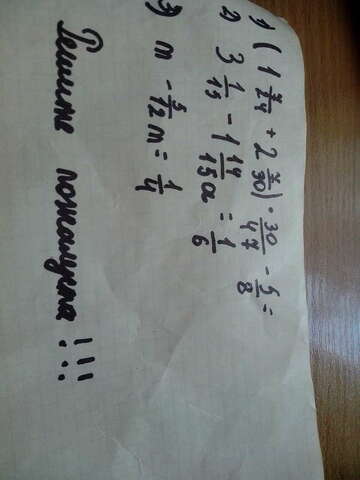 1) (1 7/24 + 2 7/30) · 30/47 - 5/8 =
2) 3 1/15 - 1 14/15 a = 1/6
3) m - 5/12 m = 1/4
Решите пожалуйста!!!